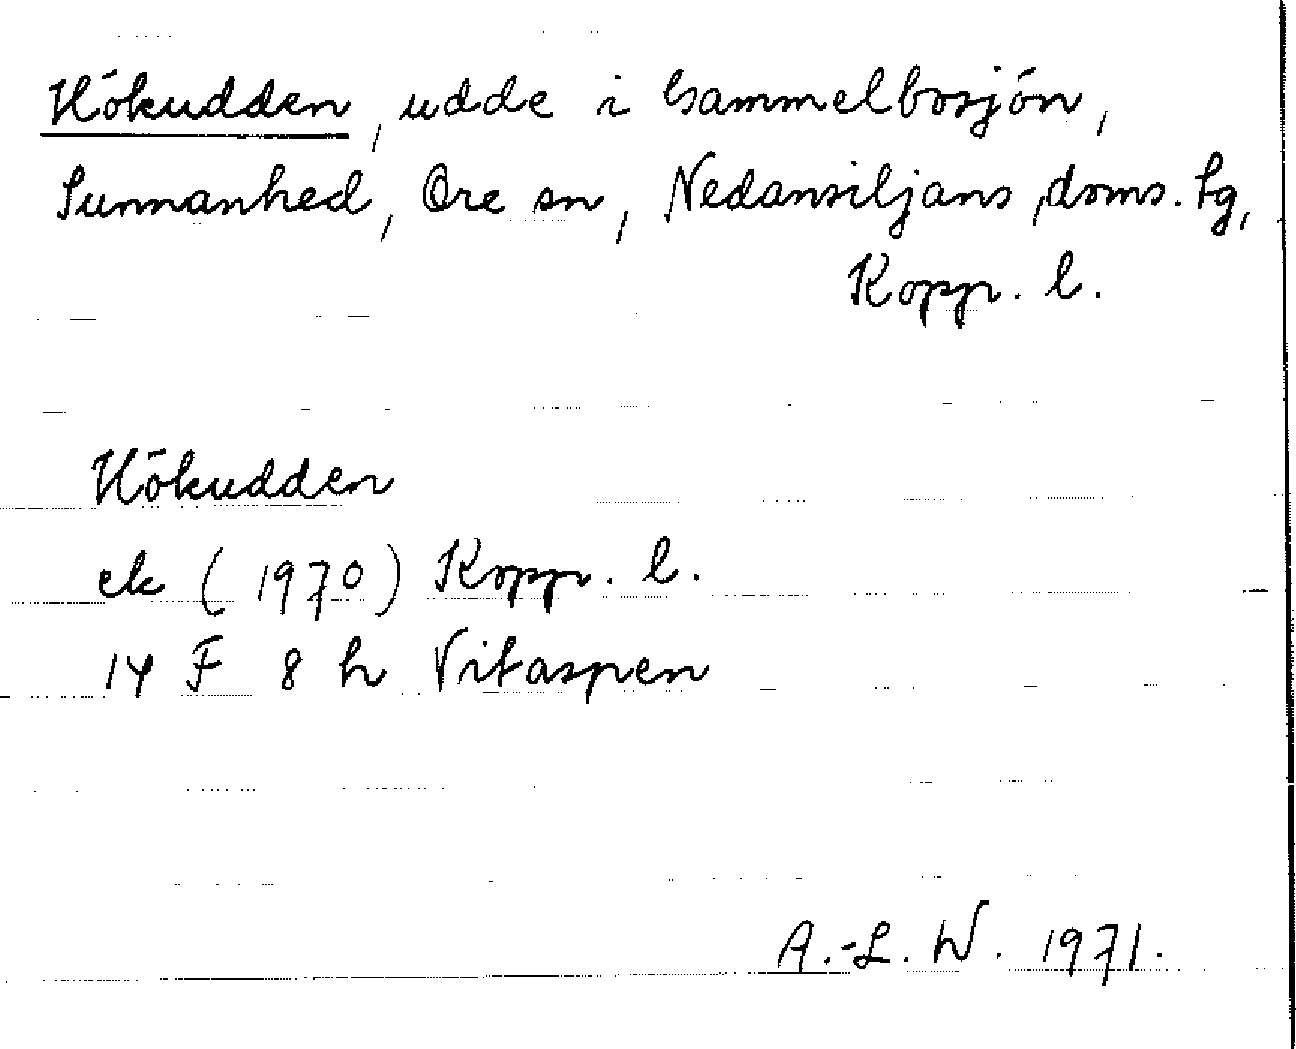 Hökudden, udde i Gammelbosjön,
Sunnanhed, Ore sn, Nedansiljans doms. tg,
Kopp. l.
Hökudden
ek (1970) Kopp. l.
14 F 8 h Vitaspen
A.-L. W. 1971.